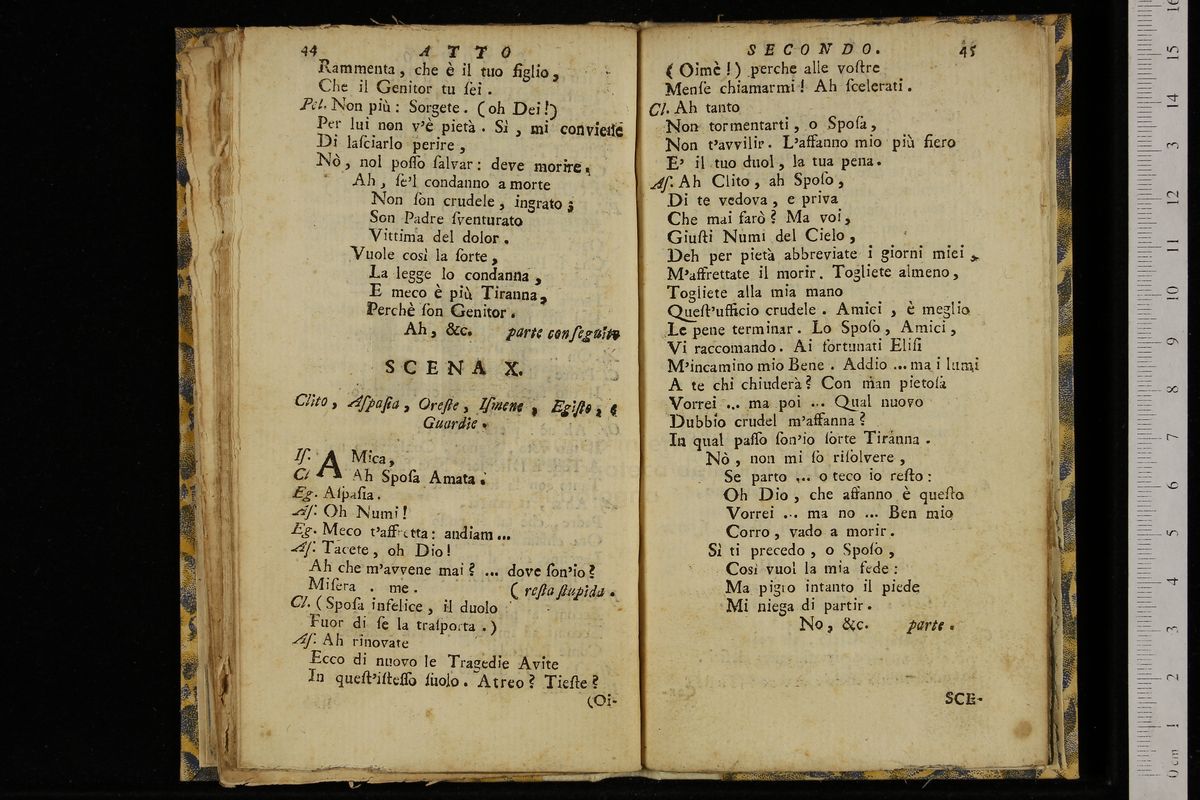 44 ATTO
Rammenta, che è il tuo figlio,
Che il Genitor tu ſei.
Pel. Non più: Sorgete. (oh Dei!)
Per lui non v'è pietà. Sì, mi conviene
Di laſciarlo perire,
Nò, nol poſſo ſalvar: deve morire.
Ah, ſe'l condanno a morte
Non ſon crudele, ingrato;
Son Padre ſventurato
Vittima del dolor.
Vuole così la ſorte,
La legge lo condanna,
E meco è più Tiranna,
Perchè ſon Genitor.
Ah, &c. parte con ſeguito
SCENA X.
Clito, Aſpaſia, Oreſte, Iſmene, Egiſto, e
Guardie.
Iſ. AMica,
Cl Ah Spoſa Amata.
Eg. Aſpaſia.
Aſ. Oh Numi!
Eg. Meco t'affretta: andiam...
Aſ. Tacete, oh Dio!
Ah che m'avvene mai? ... dove ſon'io?
Miſera . me. (reſta ſtupida.
Cl. (Spoſa infelice, il duolo
Fuor di ſe la traſporta.)
Aſ. Ah rinovate
Ecco di nuovo le Tragedie Avite
In queſt'iſteſſo ſuolo. Atreo? Tieſte?
(Oi-
SECONDO. 45
(Oimè!) perche alle voſtre
Menſe chiamarmi! Ah ſcelerati.
Cl. Ah tanto
Non tormentarti, o Spoſa,
Non t'avvilir. L'affanno mio più fiero
E' il tuo duol, la tua pena.
Aſ. Ah Clito, ah Spoſo,
Di te vedova, e priva
Che mai farò? Ma voi,
Giuſti Numi del Cielo,
Deh per pietà abbreviate i giorni miei,
M'affrettate il morir. Togliete almeno,
Togliete alla mia mano
Queſt'ufficio crudele. Amici, è meglio
Le pene terminar. Lo Spoſo, Amici,
Vi raccomando. Ai fortunati Eliſi
M'incamino mio Bene. Addio ... ma i lumi
A te chi chiuderà? Con man pietoſa
Vorrei ... ma poi ... Qual nuovo
Dubbio crudel m'affanna?
In qual paſſo ſon'io ſorte Tiranna.
Nò, non mi ſò riſolvere,
Se parto ... o teco io reſto:
Oh Dio, che affanno è queſto
Vorrei ... ma no ... Ben mio
Corro, vado a morir.
Sì ti precedo, o Spoſo,
Così vuol la mia fede:
Ma pigro intanto il piede
Mi niega di partir.
No, &c. parte.
SCE-
0 cm 1 2 3 4 5 6 7 8 9 10 11 12 3 14 15 16